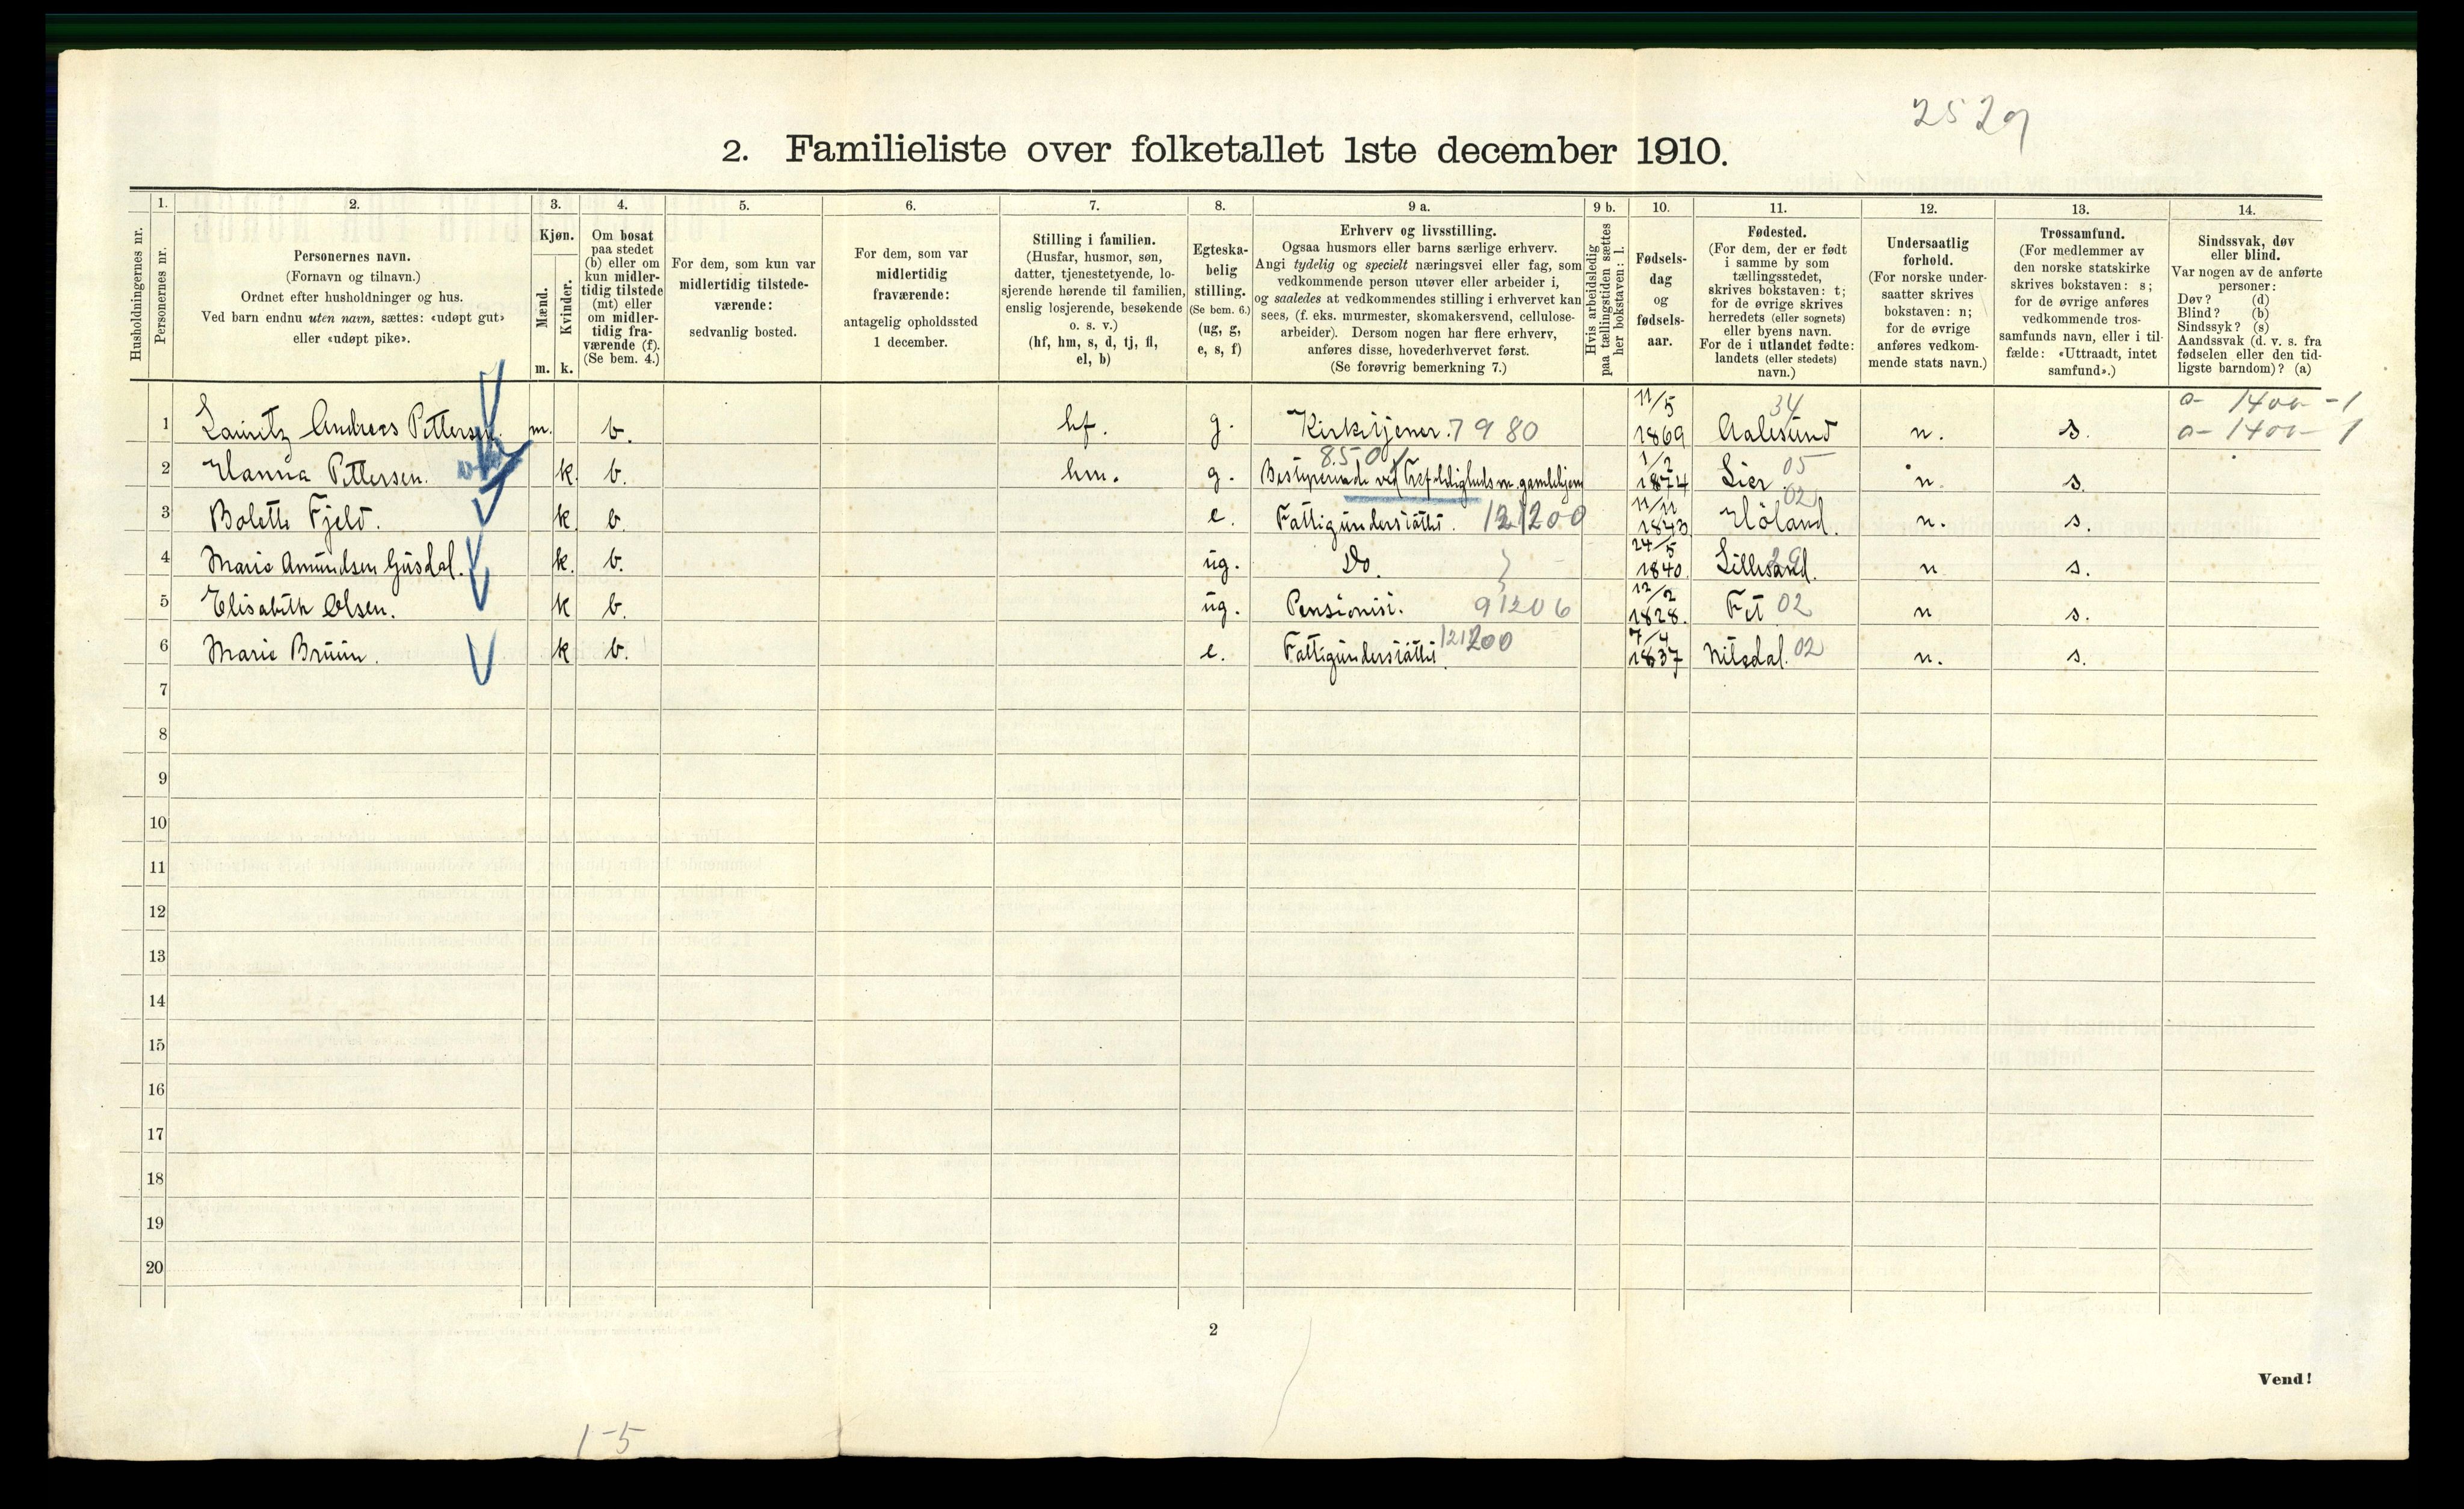 2529
2. Familieliste over folketallet 1ste december 1910.
Husholdningernes nr.
1.
Personernes nr.
2.
Personernes navn.
(Fornavn og tilnavn.)
Ordnet efter husholdninger og hus.
Ved barn endnu uten navn, sættes: «udøpt gut»
eller «udøpt pike».
3.
Kjøn.
Mænd.
Kvinder.
m. k.
4.
Om bosat
paa stedet
(b) eller om
kun midler-
tidig tilstede
(mt) eller
om midler-
tidig fra-
værende (f).
(Se bem. 4.)
5.
For dem, som kun var
midlertidig tilstede-
værende:
sedvanlig bosted.
6.
For dem, som var
midlertidig
fraværende:
antagelig opholdssted
1 december.
7.
Stilling i familien.
(Husfar, husmor, søn,
datter, tjenestetyende, lo-
sjerende hørende til familien,
enslig losjerende, besøkende
o. s. v.)
(hf, hm, s, d, tj, fl,
el, b)
8.
Egteska-
belig
stilling.
(Se bem. 6.)
(ug, g,
e, s, f)
9 a.
Erhverv og livsstilling.
Ogsaa husmors eller barns særlige erhverv.
Angi tydelig og specielt næringsvei eller fag, som
vedkommende person utøver eller arbeider i,
og saaledes at vedkommendes stilling i erhvervet kan
sees, (f. eks. murmester, skomakersvend, cellulose-
arbeider). Dersom nogen har flere erhverv,
anføres disse, hovederhvervet først.
(Se forøvrig bemerkning 7.)
9 b.
Hvis arbeidsledig
paa tællingstiden sættes
her bokstaven: l.
10.
Fødsels-
dag
og
fødsels-
aar.
11.
Fødested.
(For dem, der er født
i samme by som
tællingsstedet,
skrives bokstaven: t;
for de øvrige skrives
herredets (eller sognets)
eller byens navn.
For de i utlandet fødte:
landets (eller stedets)
navn.)
12.
Undersaatlig
forhold.
(For norske under-
saatter skrives
bokstaven: n;
for de øvrige
anføres vedkom-
mende stats navn.)
13.
Trossamfund.
(For medlemmer av
den norske statskirke
skrives bokstaven: s;
for de øvrige anføres
vedkommende tros-
samfunds navn, eller i til-
fælde: «Uttraadt, intet
samfund».)
14.
Sindssvak, døv
eller blind.
Var nogen av de anførte
personer:
Døv? (d)
Blind? (b)
Sindssyk? (s)
Aandssvak (d. v. s. fra
fødselen eller den tid-
ligste barndom)? (a)
1 Lauritz Andreas Pettersen. m. b. hf. g. Kirketjener. 7980 11/5 1869 Aalesund 34 n. s. a- 1400 -1
a- 1400- 1
2 Hanna Pettersen. k. b. hm. g. Bestyrerinde ved Trefoldigheds m. gamlehjem 1/2 1874 Lier 05 n. s.
3 Bolette Fjeld. k. b. e. Fattigunderstøttet. 121200 11/11 1843 Höland. 02 n. s.
4 Marie Amundsen Gusdal. k. b. ug. Do. 24/5 1840. Lillesand. n s.
5 Elisabeth Olsen. k b. ug. Pensionist. 91206 12/2 1828. Fet 02 n s.
6 Marie Bruun. k b. e. Fattigunderstøttet. 121200 7/4 1837 Nitedal. 02 n. s.
7
8
9
10
11
12
13
14
15
16
17
18
19
20
2
Vend!
1-5